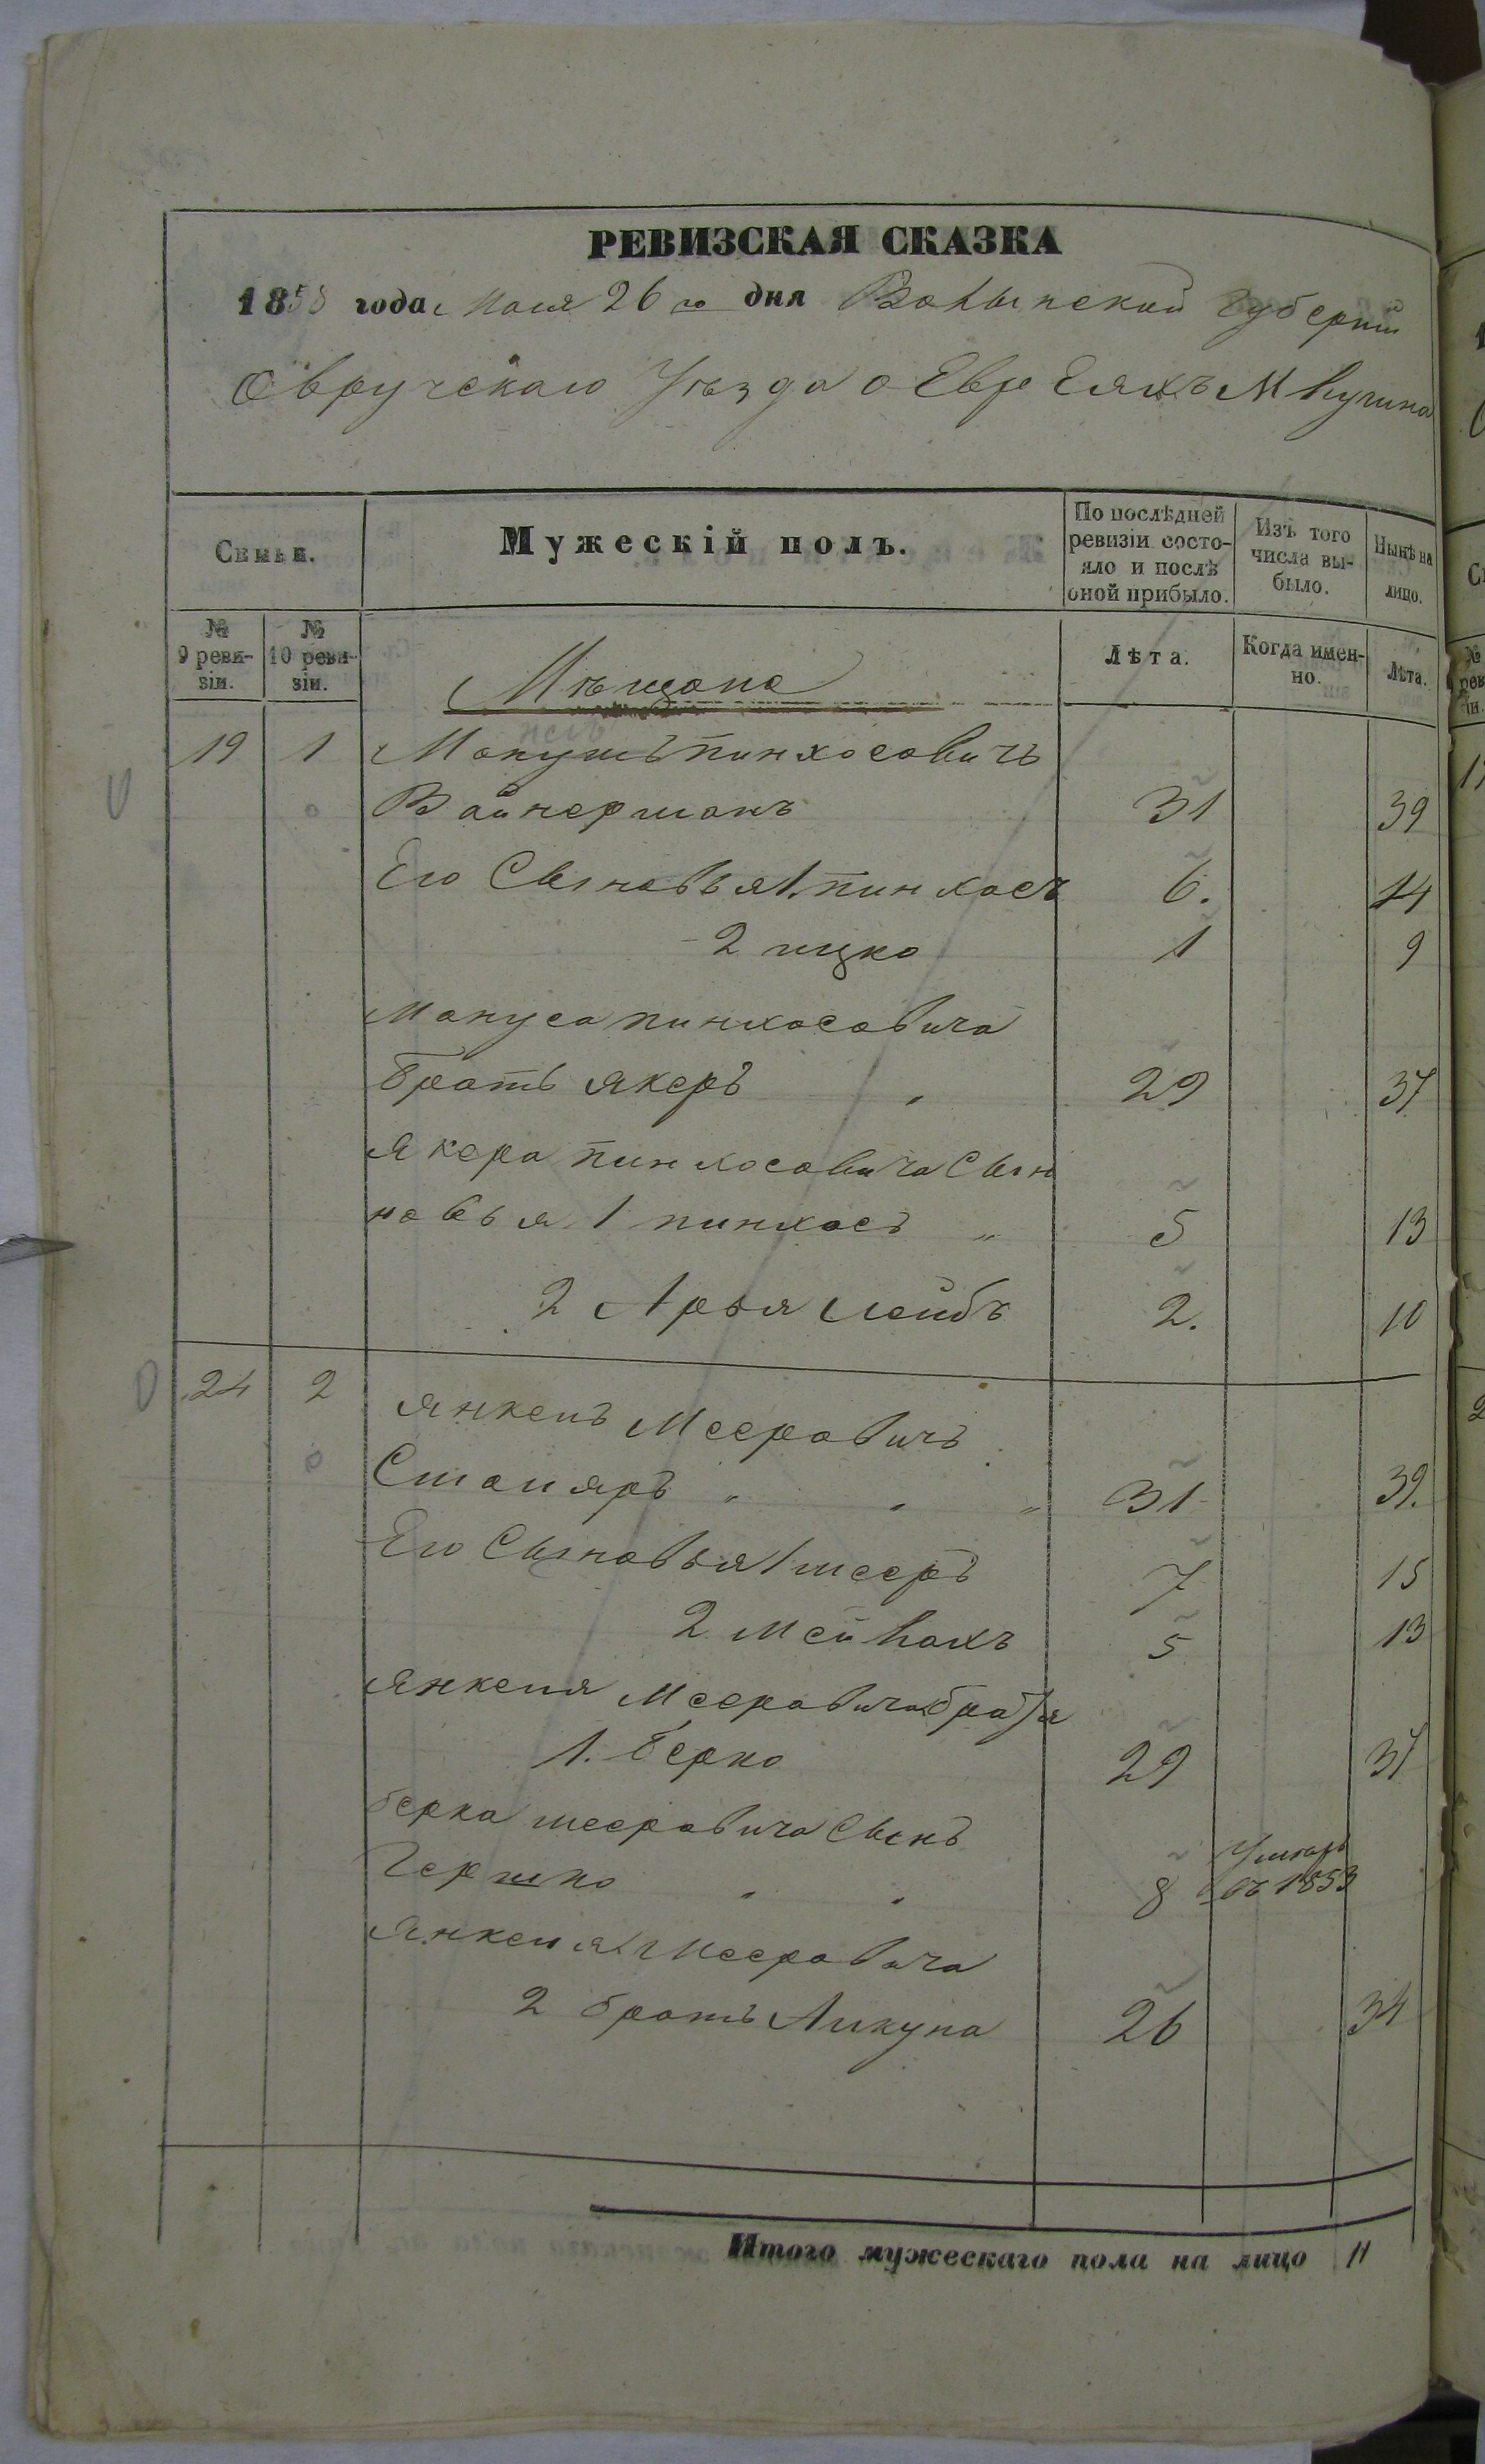 РЕВИЗСКАЯ СКАЗКА
1858 года Мая 26 го дня Волынской Губерніи
Овручскаго Уѣзда о Евреяхъ М Лугина
Семьи.
Мужескій полъ.
По послѣдней ревизіи состо-
яло и послѣ оной прибыло.
Изъ того числа вы-
было.
Нынѣ на лицо.
№ 9 реви-
зіи.
№ 10 реви-
зіи.
Мѣщане
Лѣта.
Когда имен-
но.
Лѣта.
19 1 Манусъ Пинхосовичъ
Вайнерманъ 31 39
Его Сыновья 1. Пинхосъ 6. 14
2 ицко 1 9
Мануса Пинхосовича
братъ Якеръ 29 37
Якера Пинхосовича Сын
новья 1 Пинхосъ 5 13
2 Арья Лейбъ 2. 10
24 2 Янкель Мееровичъ
Столяръ 31 39.
Его Сыновья 1 Мееръ 7 15
2 Мейлахъ 5 13
Янкеля Мееровича братья
1. Берко 29 37
Берка Мееровича Сынъ
Гершко 8 Умеръ
въ 1853
Янкеля Мееровича
2 братъ Аикуна 26 34
Итого мужескаго пола на лицо 11